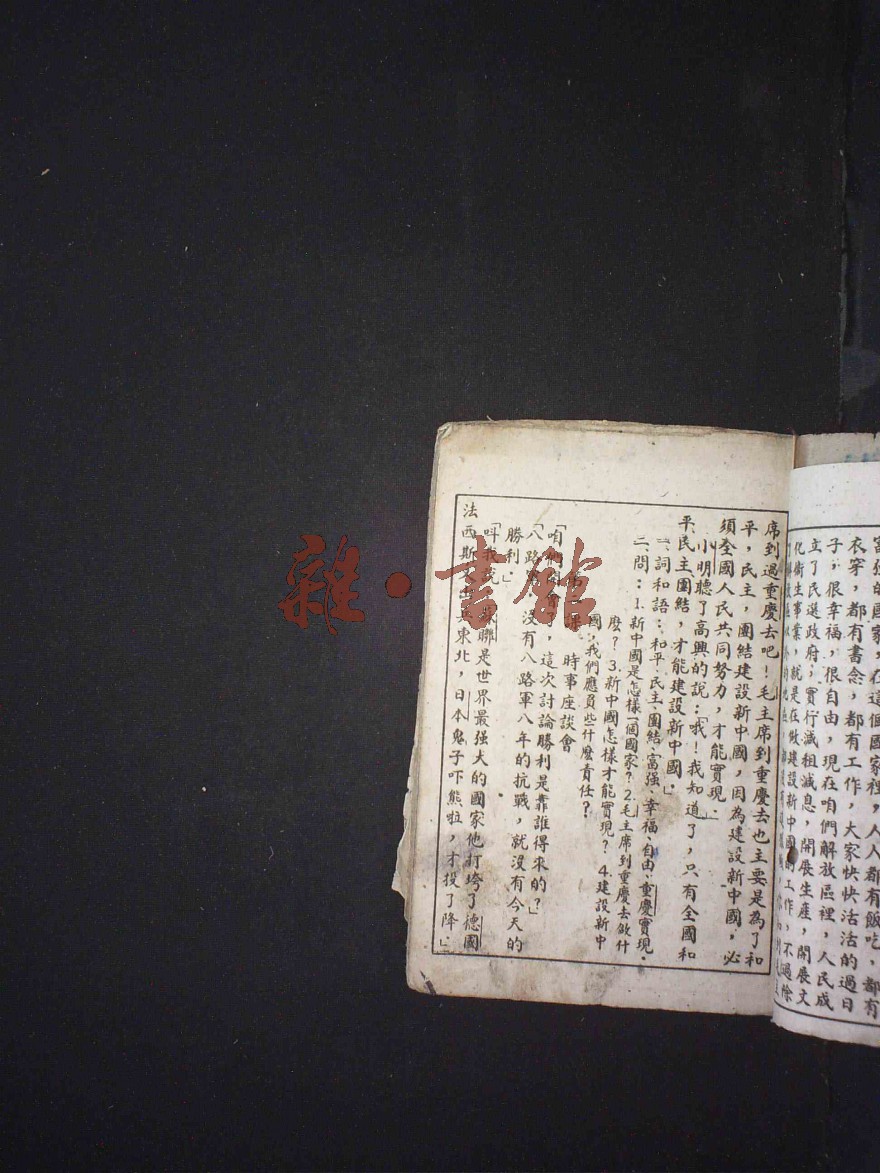 富强的國家，在這個國家裡，人人都有飯吃，都有
衣穿，都有書念，都有工作，大家快快活活的過日
子，很幸福，很自由，現在咱們解放區裡，人民成
立了民選政府，實行減租減息，開展生產，開展文
化衛生事業，就是在做建設新中國的工作，不過除
席到過重慶去吧！毛主席到重慶去也主要是為了和
平，民主，團結建設新中國，因為建設新中國，必
須全國人民共同努力，才能實現。」
小明聽了高興的說：「哦！我知道了，只有全國和
平民主團結，才能建設新中國。」
一、詞和語：和平、民主、團結、富强、幸福、自由、重慶實現。
二、問：1.新中國是怎樣一個國家？2.毛主席到重慶去做什
麼？3.新中國怎樣才能實現？4.建設新中
國，我們應負些什麼責任？
課 時事座談會
「咱們，這次討論勝利是靠誰得來的？」
「八路，沒有八路軍八年的抗戰，就沒有今天的
勝利。」
「叫我說，蘇聯是世界最强大的國家他打垮了德國
法西斯，出兵東北，日本鬼子吓熊啦，才投了降，」
雜·書館